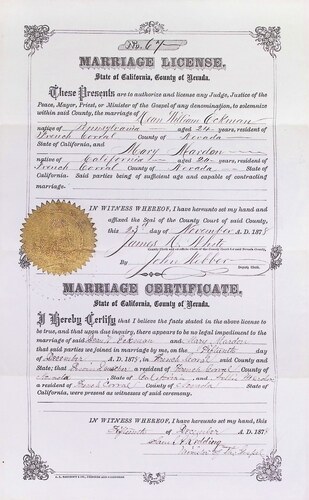 No. 67
MARRIAGE LICENSE.
State of California, County of Nevada.
These Presents are to authorize and license any Judge, Justice of the
Peace, Mayor, Priest, or Minister of the Gospel of any denomination, to solemnize
within said County, the marriage of William Eckman
native of Pennsylvania aged 24 years, resident of
French Corral County of Nevada
State of California, and
Mary Hardon
native of California aged 20 years, resident of
French Corral County of Nevada State of
California. Said parties being of sufficient age and capable of contracting
marriage.
IN WITNESS WHEREOF, I have hereunto set my hand and
affixed the Seal of the County Court of said County,
this 23d day of November A. D. 1878
James H. White
By John Webber
Deputy Clerk.
MARRIAGE CERTIFICATE.
State of California, County of Nevada.
I Hereby Certify that I believe the facts stated in the above license to
be true, and that upon due inquiry, there appears to be no legal impediment to the
marriage of said Eckman and Mary Hardon
that said parties were joined in marriage by me, on the Fifteenth day
of December A. D. 1878, in French Corral County and
State; that a resident of French Corral County of
Nevada State of California, and
a resident of French Corral County of Nevada State of
California, were present as witnesses of said ceremony.
IN WITNESS WHEREOF, I have hereunto set my hand, this
Fifteenth of December A. D. 1878
Minister of the Gospel